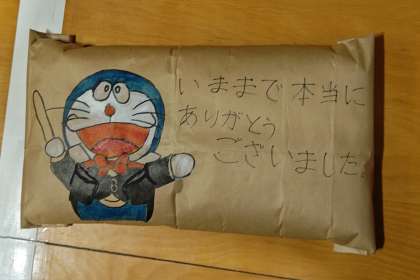 いままで本当に
ありがとう
ございました。